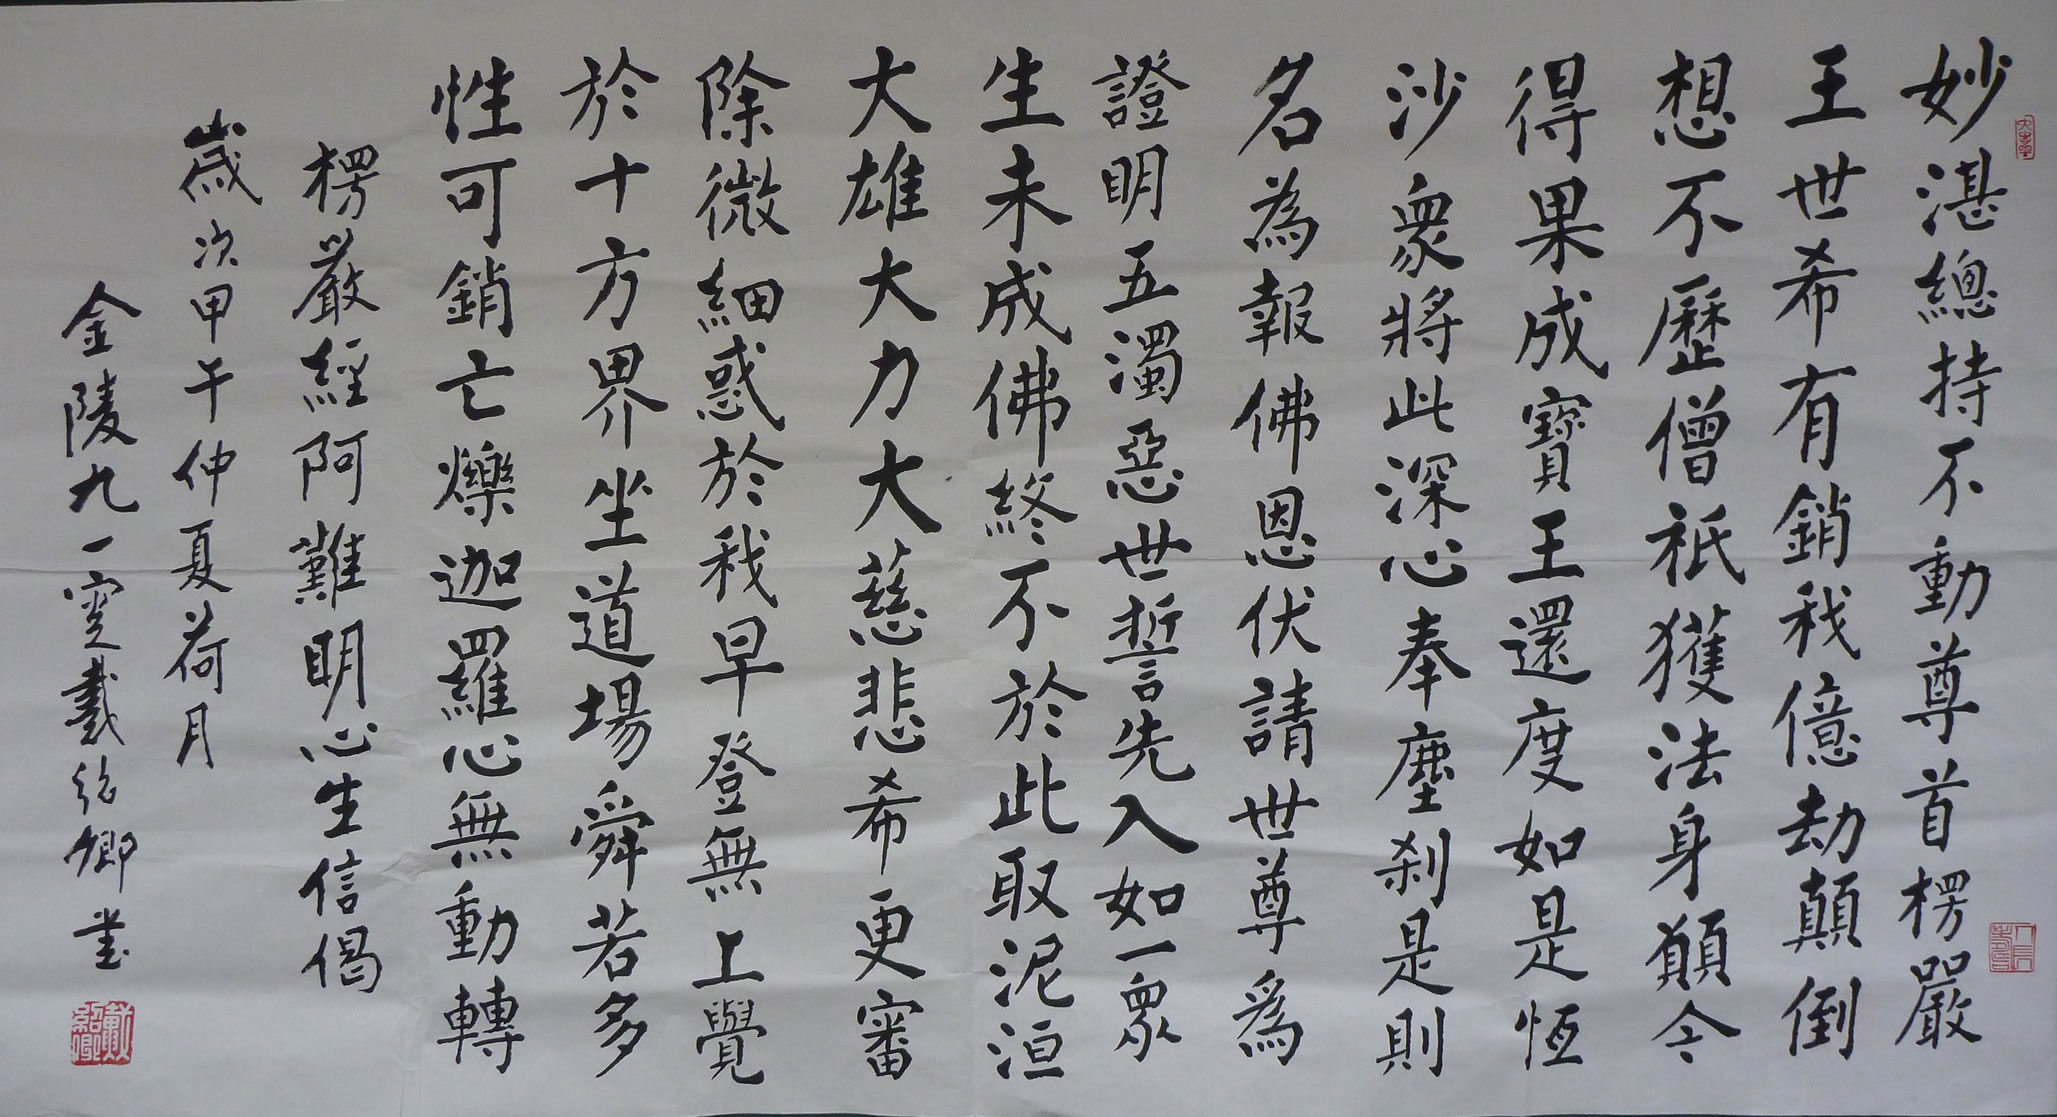 妙湛總持不動尊首楞嚴
王世希有銷我億劫顛倒
想不歷僧祇獲法身願今
得果成寶王還度如是恆
沙衆將此深心奉塵剎是則
名為報佛恩伏請世尊爲
證明五濁惡世誓先入如一衆
生未成佛終不於此取泥洹
大雄大力大慈悲希更審
除微細惑於我早登無上覺
於十方界坐道場舜若多
性可銷亡爍迦羅心無動轉
楞嚴經阿難明心生信偈
歲次甲午仲夏荷月
金陵九一叟戴紹卿書
戴紹卿